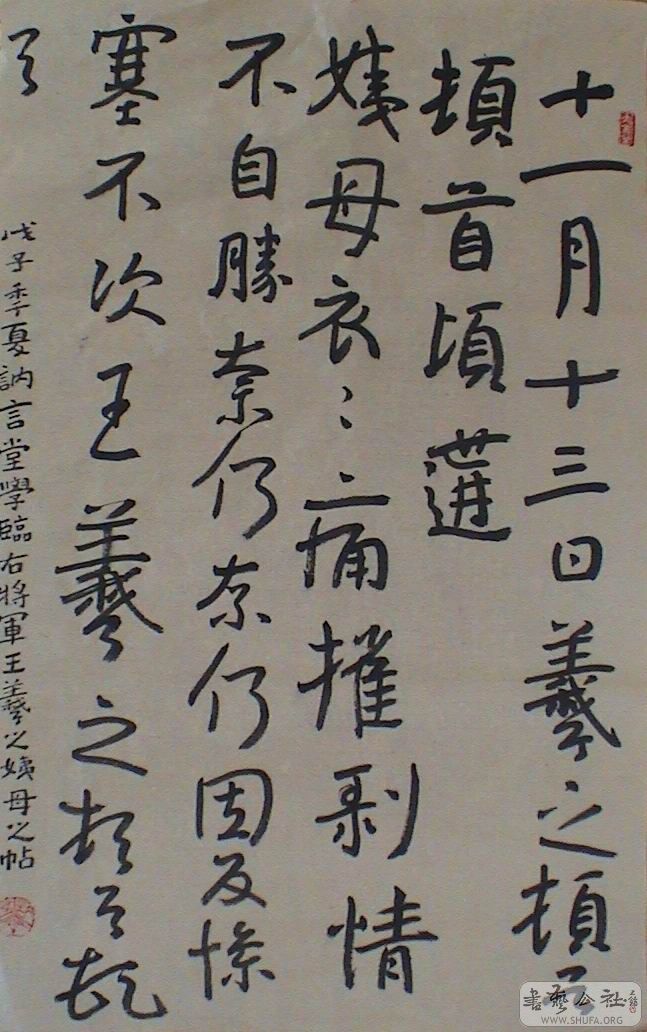 十一月十三日羲之頓首
頓首頃遘
姨母哀〻痛摧剥情
不自勝奈何奈何因反慘
塞不次王羲之頓首頓
首
戊子季夏訥言堂學臨右將軍王羲之姨母之帖
書藝公社
WWW.SHUFA.ORG